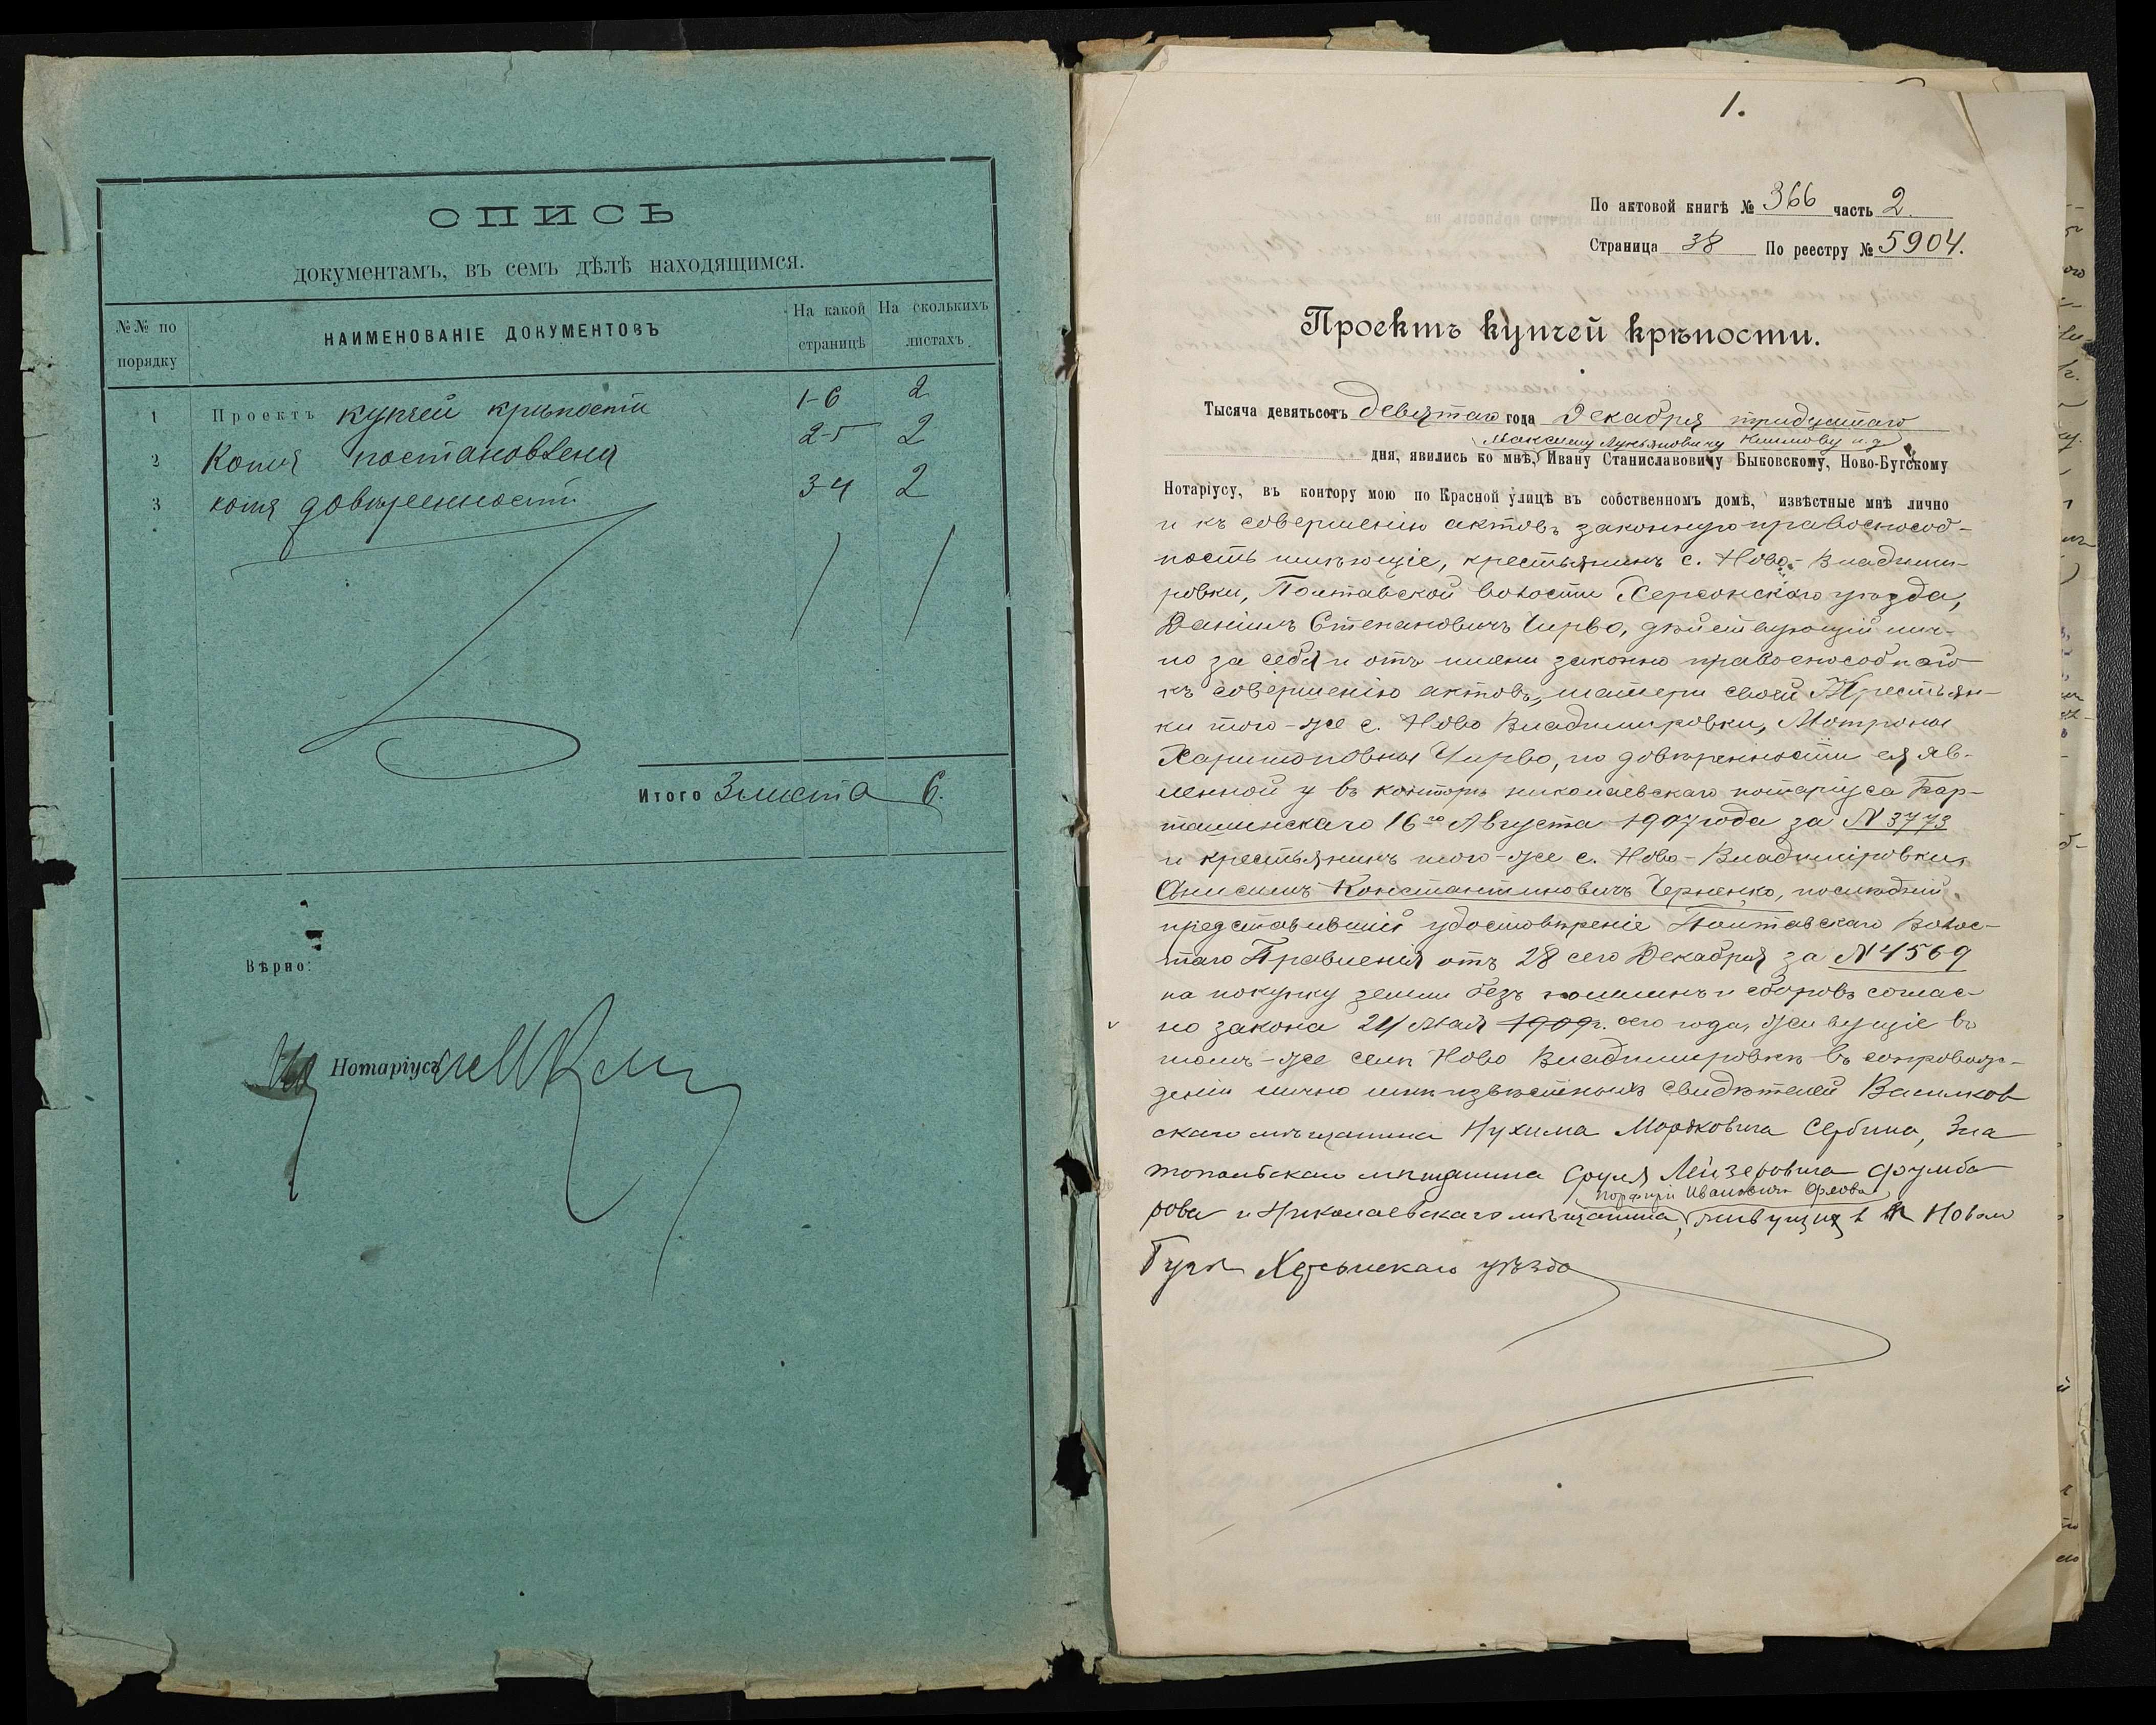 ОПИСЬ
документамъ, въ семъ дѣлѣ находящимся.
№№ по порядку
НАИМЕНОВАНІЕ ДОКУМЕНТОВЪ
На какой страницѣ
На сколькихъ листахъ.
1 Проектъ купчей крѣпости 1-6 2
2 Копія постановленія 2-5 2
3 копія довѣренности 3-4 2
Итого 3 листа 6.
Вѣрно:
Нотаріусъ
1.
По актовой книгѣ № 366 часть 2.
Страница 38 По реестру № 5904.
Проектъ купчей крѣпости.
Тысяча девятьсотъ девятаго года Декабря тридцатаго
Максиму Лукьяновичу Климову и.д.
дня, явились ко мнѣ, Ивану Станиславовичу Быковскому, Ново-Бугскому
Нотаріусу, въ контору мою по Красной улицѣ въ собственномъ домѣ, извѣстные мнѣ лично
и къ совершенію актовъ законную правоспособ-
ность имѣющіе, крестьянинъ с. Ново-Владими-
ровки, Полтавской волости Херсонскаго уѣзда,
Даніилъ Степановичъ Чирво, дѣйствующій лич-
но за себя и отъ имени законно правоспособной
къ совершенію актовъ, матери своей Крестьян-
ки того-же с. Ново Владимировки, Мотроны
Харитоновны Чирво, по довѣренности ея яв-
ленной у въ конторѣ николаевскаго нотаріуса Бар-
ташинскаго 16го Августа 1907 года за N 3773
и крестьянинъ того-же с. Ново-Владиміровки,
Онисимъ Константиновичъ Черненко, послѣдній
представившій удостовѣреніе Полтавскаго Волос-
таго Правленія отъ 28 сего Декабря за N 4569
на покупку земли безъ пошлинъ и сборовъ соглас-
но закона 24 Мая 1909г. сего года, живущіе въ
томъ-же селѣ Ново Владимировкѣ въ сопровож-
деніи лично мнѣ извѣстныхъ свидѣтелей Васильков
скаго мѣщанина Нухима Мордковича Сербина, Зла
топольскаго мѣщанина Сруля Лейзеровича Фумба
Порфирія Ивановича Орлова
рова и Николаевскаго мѣщанина, живущихъ въ Новомъ
Бугѣ Херсонскаго уѣзда